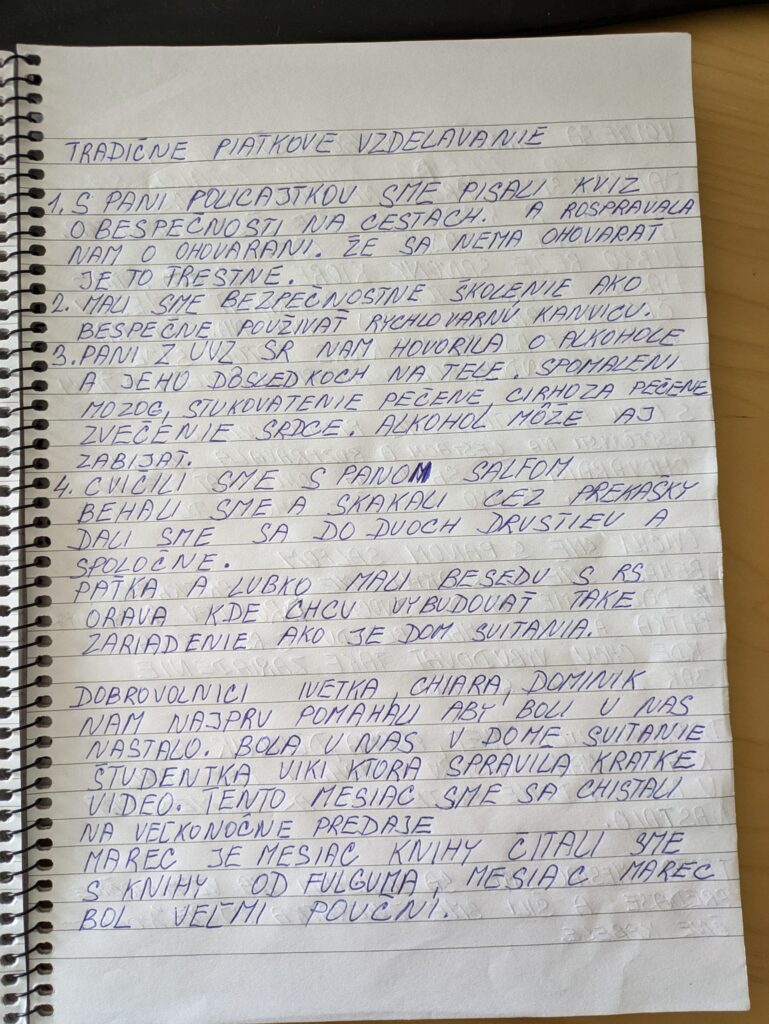 TRADIČNE PIATKOVE VZDELAVANIE
1. S PANI POLICAJTKOU SME PISALI KVIZ
O BESPEČNOSTI NA CESTACH. A ROSPRAVALA
NAM O OHOVARANI. ŽE SA NEMA OHOVARAŤ
JE TO TRESTNE.
2. MALI SME BEZPEČNOSTNE ŠKOLENIE AKO
BESPEČNE POUŽIVAŤ RYCHLOVARNÚ KANVICU.
3. PANI Z UVZ SR NAM HOVORILA O ALKOHOLE
A JEHO DÔSLEDKOCH NA TELE. SPOMALENI
MOZOG, STUKOVATENIE PEČENE, CIRHOZA PEČENE
ZVEČENIE SRDCE. ALKOHOL MÔŽE AJ
ZABIJAŤ.
4. CVIČILI SME S PANOM SALFOM
BEHALI SME A SKAKALI CEZ PREKAŠKY
DALI SME SA DO DVOCH DRUSTIEV A
SPOLOČNE.
PAŤKA A LUBKO MALI BESEDU S RS
ORAVA KDE CHCU VYBUDOVAŤ TAKE
ZARIADENIE AKO JE DOM SVITANIA.
DOBROVOLNICI IVETKA, CHIARA, DOMINIK
NAM NAJPRV POMAHALI ABY BOLI U NAS
NASTALO. BOLA U NAS V DOME SVITANIE
ŠTUDENTKA VIKI KTORA SPRAVILA KRATKE
VIDEO. TENTO MESIAC SME SA CHISTALI
NA VEĽKONOČNE PREDAJE
MAREC JE MESIAC KNIHY ČITALI SME
S KNIHY OD FULGUMA, MESIAC MAREC
BOL VEĽMI POUČNI.